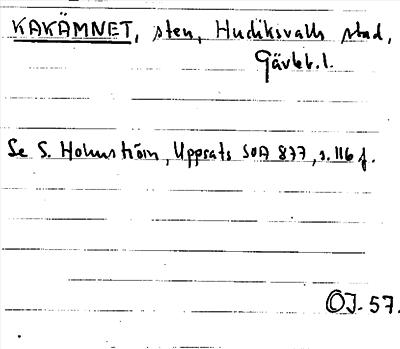 KAKÄMNET, sten, Hudiksvalls stad,
Gävleb. l.
Se S. Holmström, Uppsats SOA 877, s. 116 f.
OJ. 57.